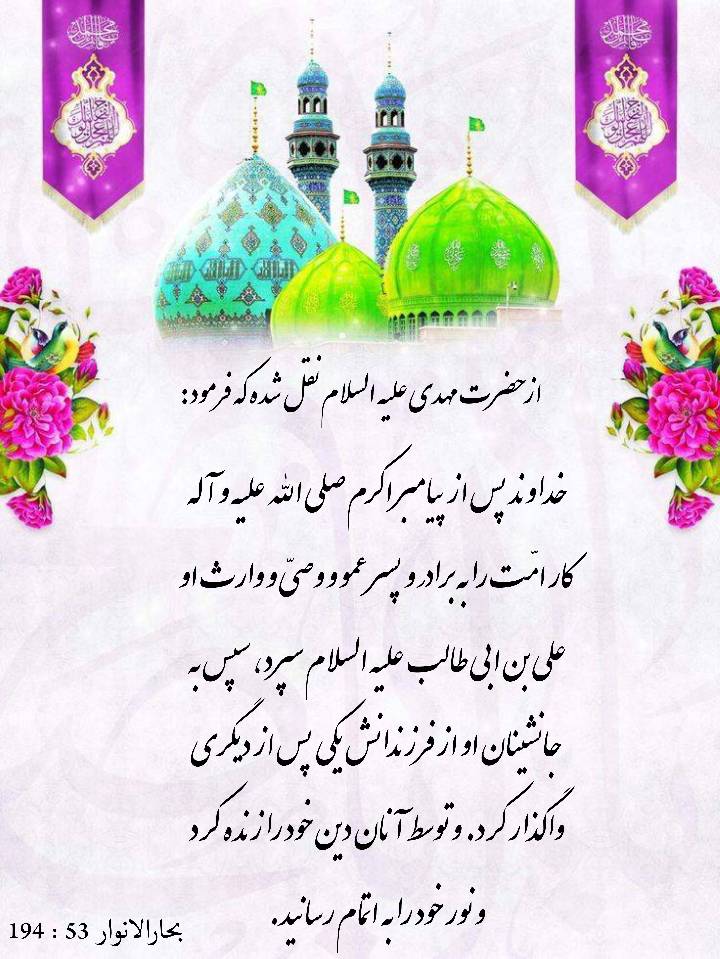 از حضرت مهدی علیه السلام نقل شده که فرمود:
خداوند پس از پیامبر اکرم صلی الله علیه و آله
کار امّت را به برادر و پسر عمو و وصیّ و وارث او
علی بن ابی طالب علیه السلام سپرد، سپس به
جانشینان او از فرزندانش یکی پس از دیگری
واگذار کرد. و توسط آنان دین خود را زنده کرد
و نور خود را به اتمام رسانید.
بحارالانوار 53 : 194